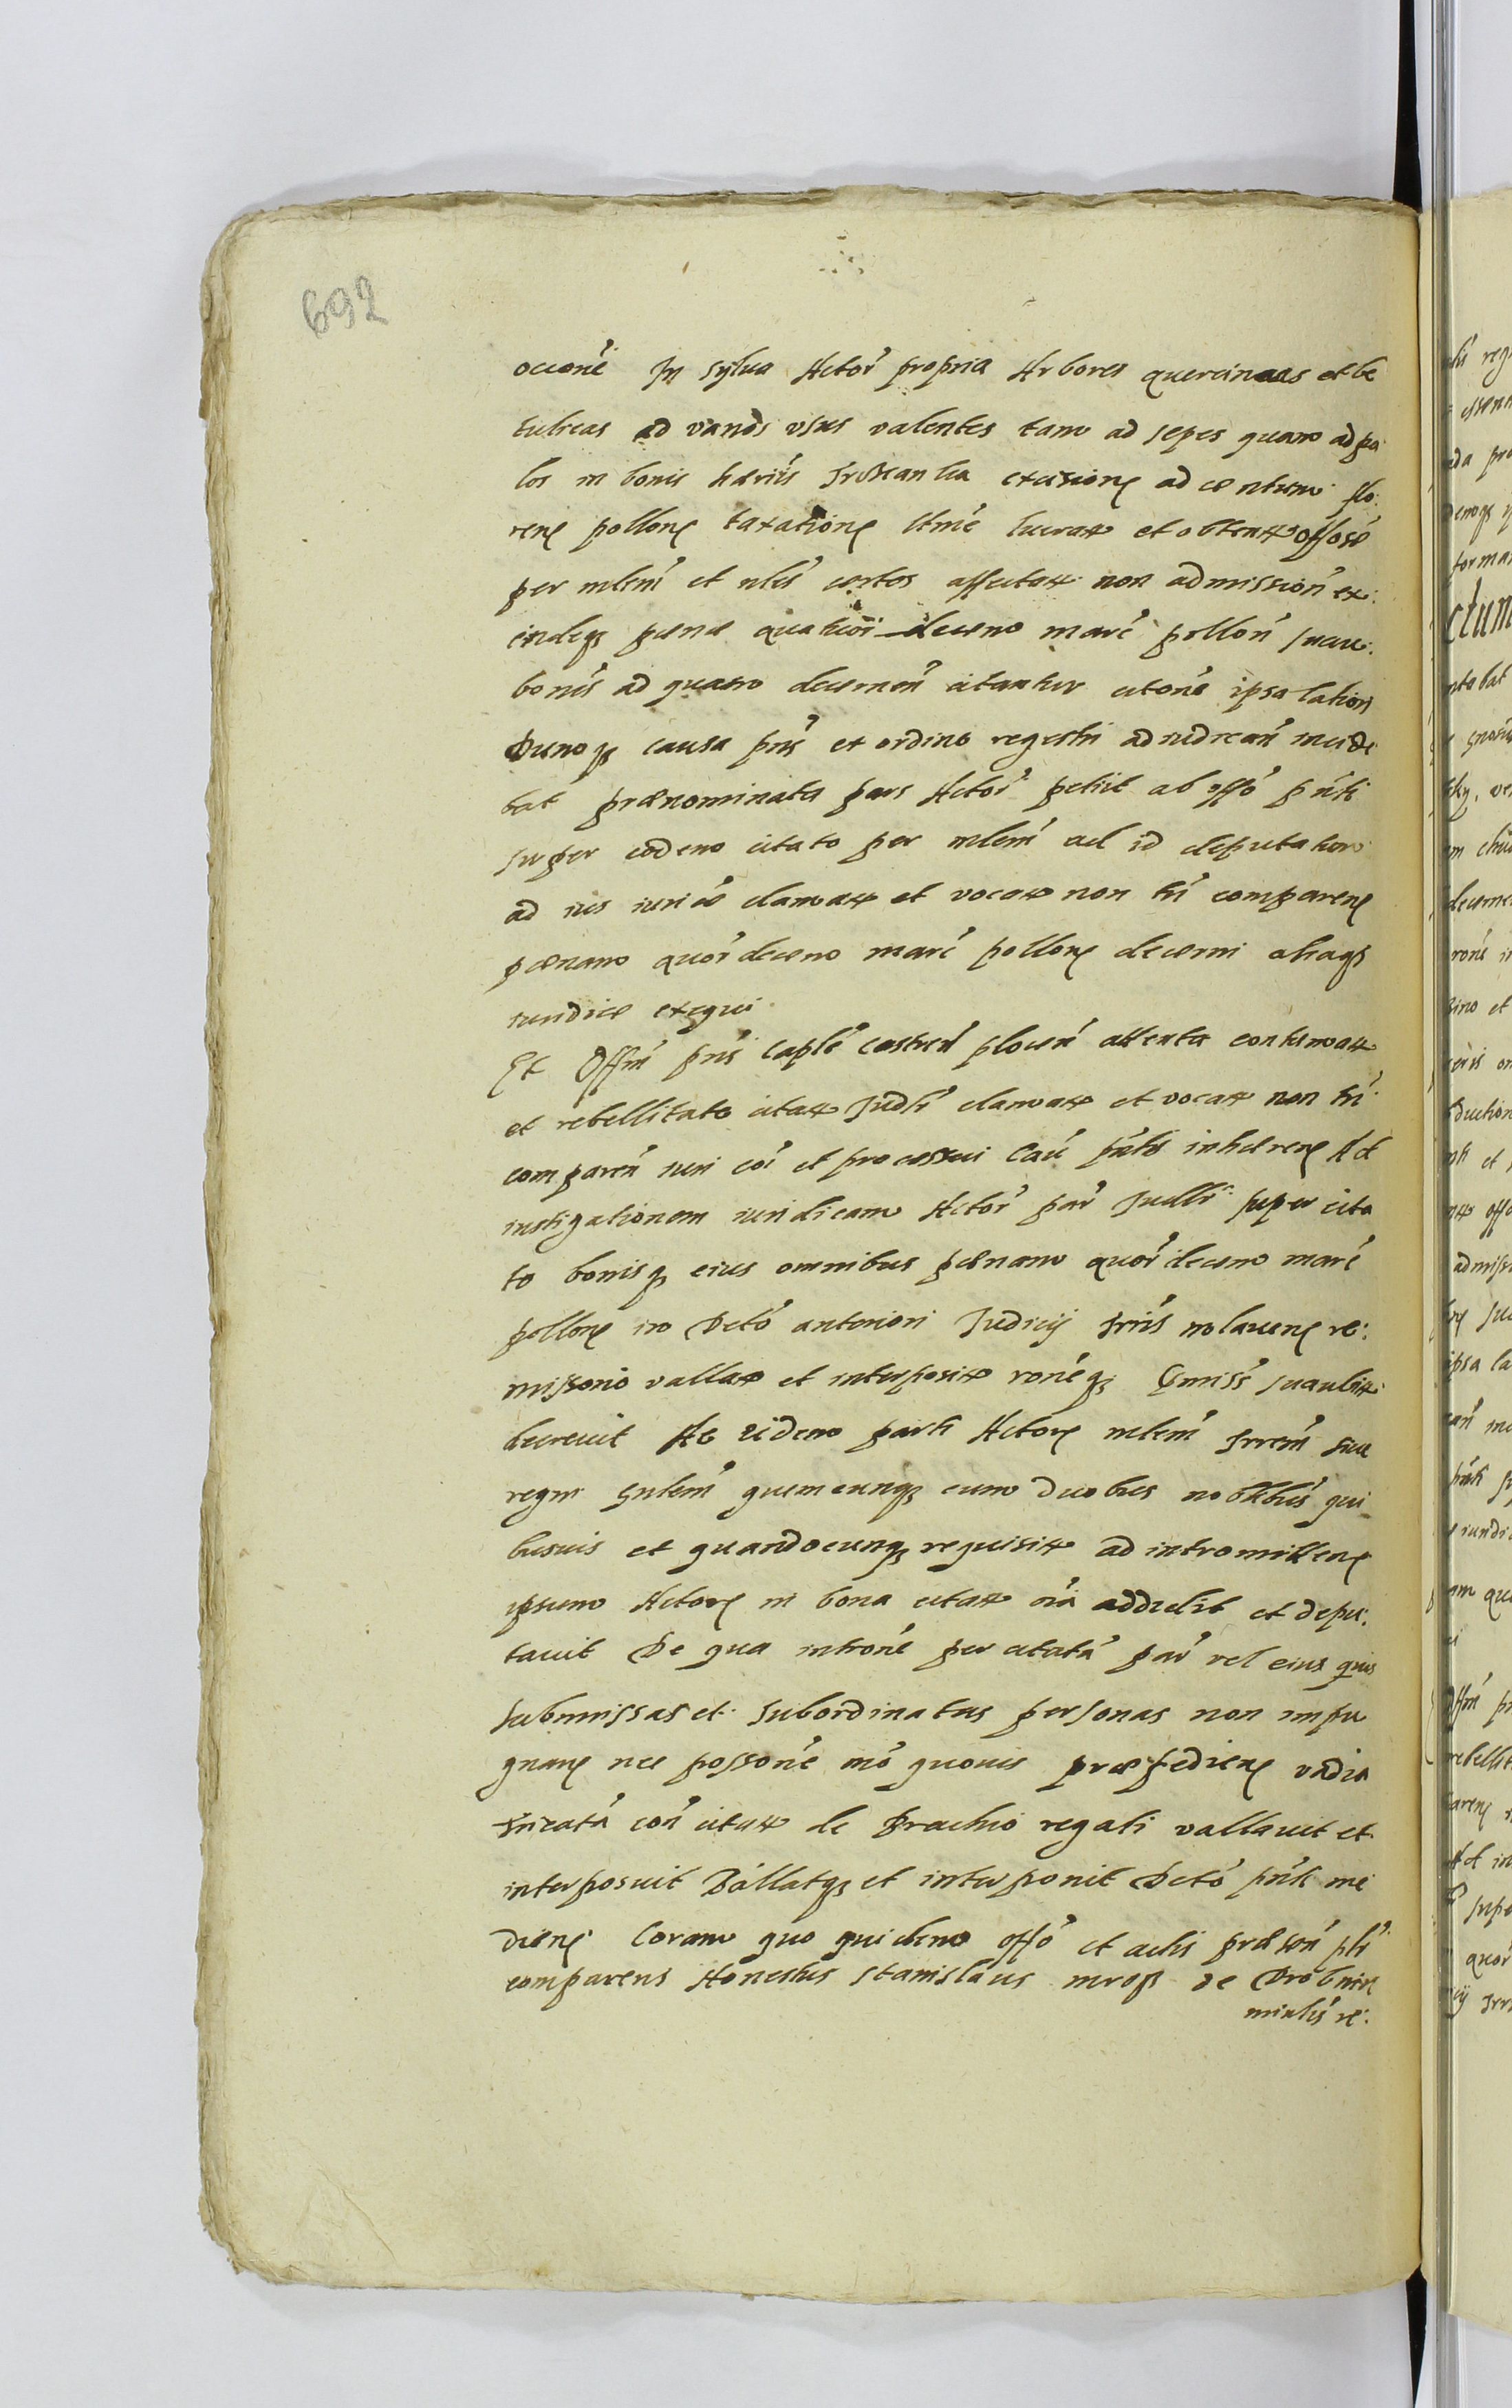 692
occione In sylva Actor propria Arbores quercinas et be
tulicas ad varios usus valentes tam ad sepes quam ad pa
los in bonis excision ad centum flo:
ren pollon taxation lucrat et obtent
per et certos affectat non admission ex:
indeq pœnœ quatuor decem marc pollon succu:
bonis ad quam decernen citantur citone ipsa lation
Dumq causa pns et ordine regestri adiudican incide
bat prænominata pars Actor petiit ab offo pnti
super eodem citato per mlem ad id deputatum
ad ius iurice clamat et vocat non tn comparen
pœnam quor decem marc pollon decerni aliaqs
iuridice exequi
Et Offm pns Caple castren plocen attenta contumat
et rebellitate citat Judlr clamat et vocat non tn
comparen iuri coi et processui Cau pntis inhæren Ad
instigationem iuridicam Actor par Judlr super cita
to bonisq eius omnibus pœnam quor decem marc
pollon in Dcto anteriori Judicij
missorio vallat et interposit roneq succubit
decrevit Ac eidem parti Actore mlem
regni gnlem quemcunq cum duobus nobilibus qui
busvis et quandocunq requisit ad intromitten
ipsum Actore in bona citat oia addidit et depu:
tavit De qua introne per citata par vel eius quis
submissas et subordinatas personas non impu
gnan nec possone mo quovis præpedien vadia
con citat de Brachio regali vallavit et
interposuit Vallatqs et interponit Dcto pnti me
dien Coram quo quidem offo et actis præsen plr
comparens Honestus Stanislaus de Drobnin
mialis re: